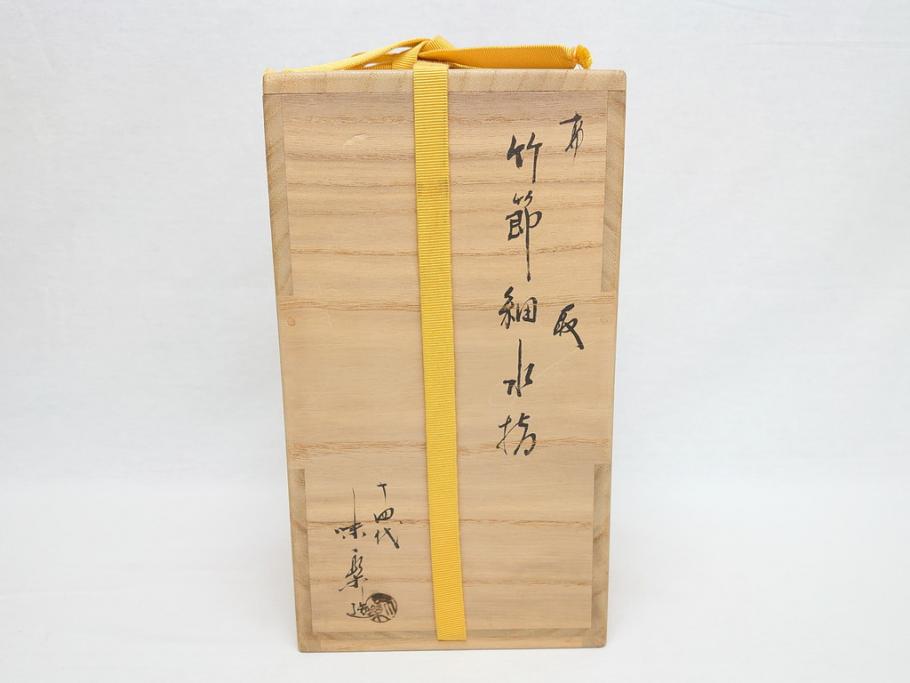 高取
竹節細水指
十四代
味楽造